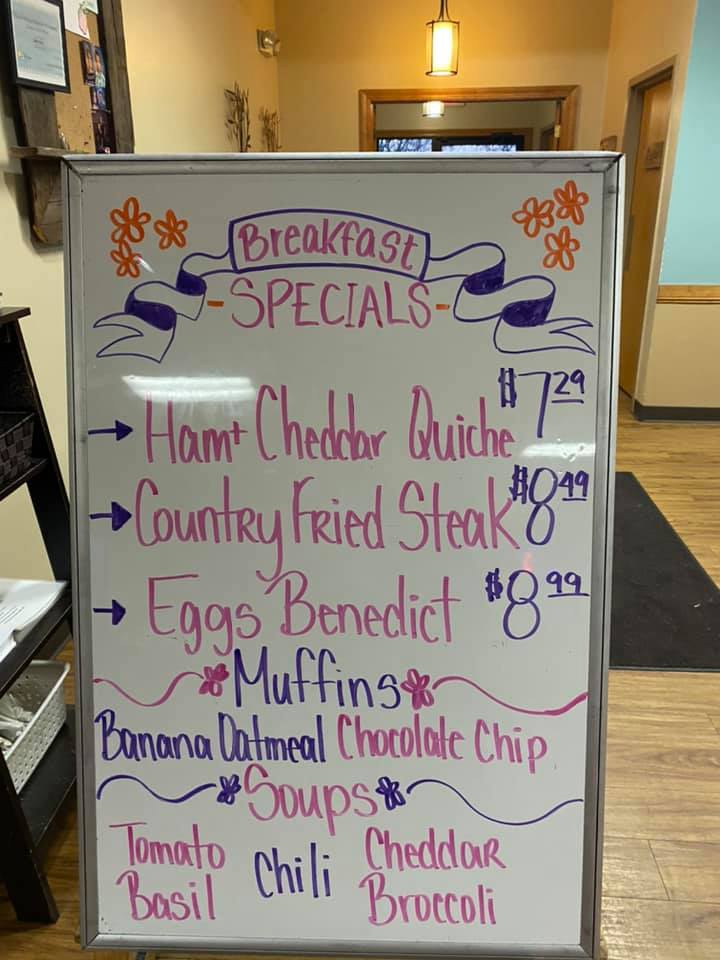 Breakfast
-SPECIALS-
→ Ham + Cheddar Quiche $7.29
→ Country Fried Steak $8.49
→ Eggs Benedict $8.99
Muffins
Banana Oatmeal Chocolate Chip
Soups
Tomato Basil
Chili
Cheddar Broccoli